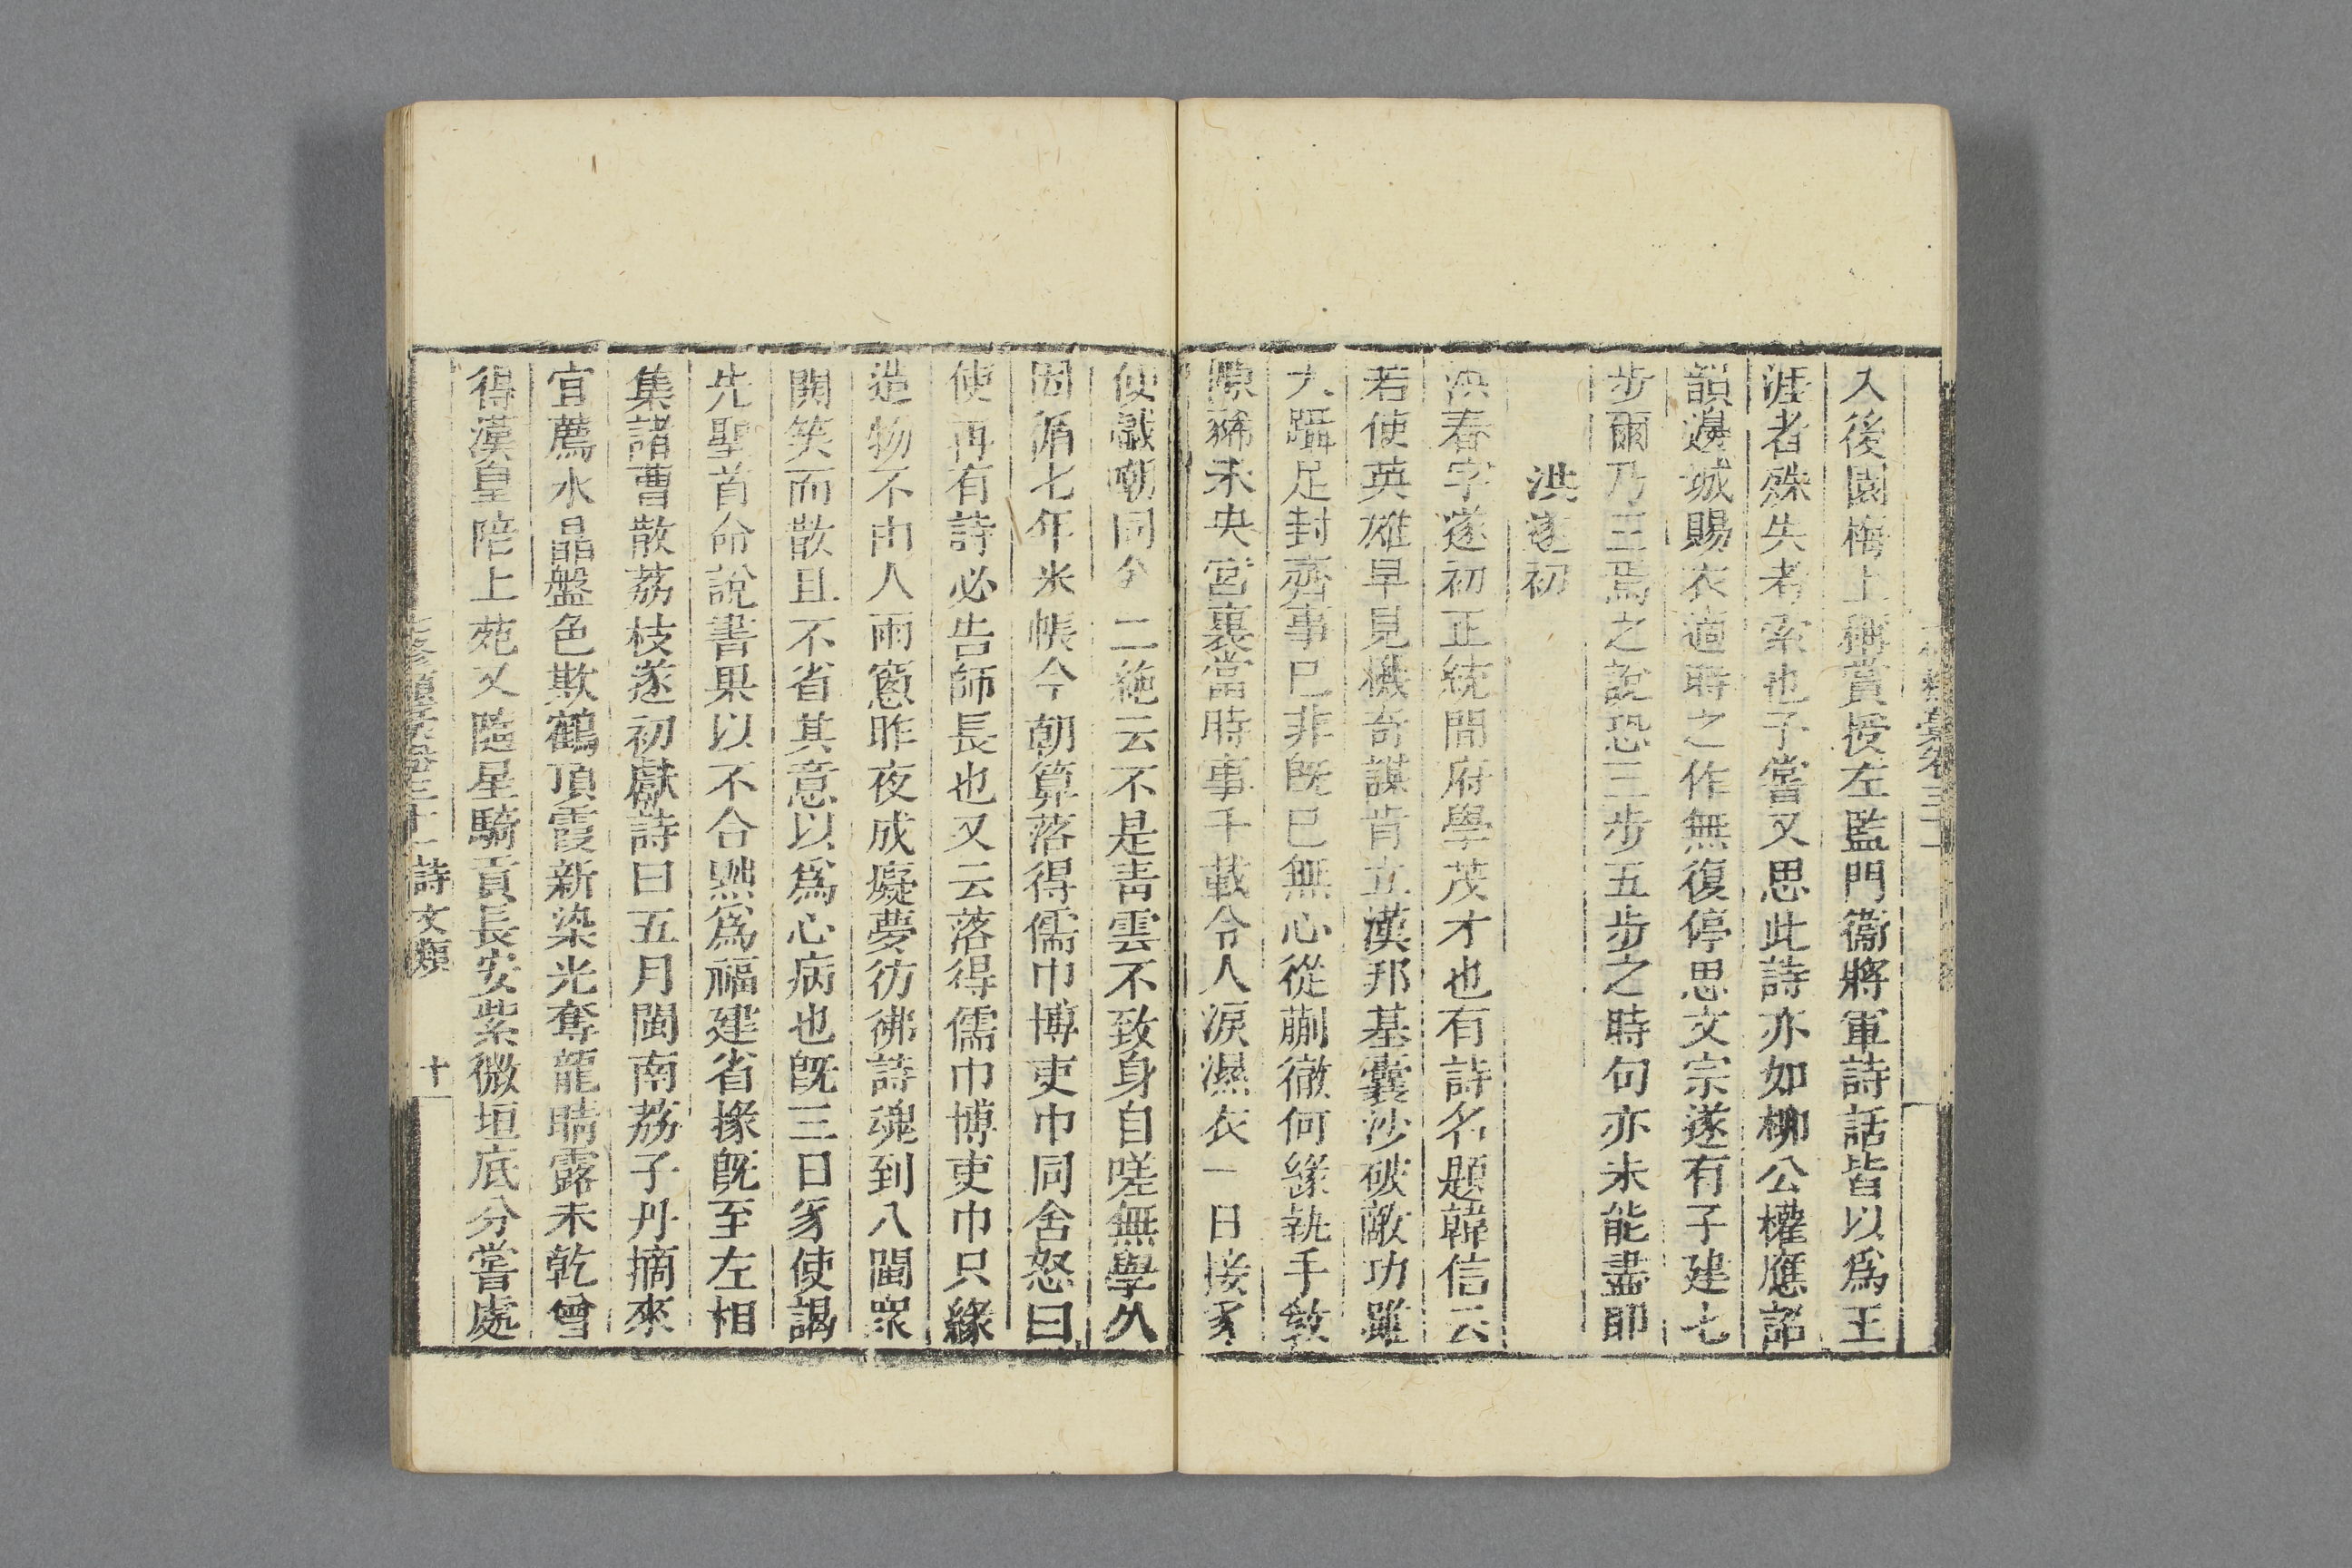 入後園梅上稱賞授左監門衞將軍詩話皆以爲王
涯者殊失考索也予嘗又思此詩亦如柳公權應詔
韻邊城賜衣適時之作無復停思文宗遂有子建七
步爾乃三焉之說恐三步五步之時句亦未能盡卽
洪遂初
洪春字遂初正統間府學茂才也有詩名題韓信云
若使英雄早見機奇謀肯立漢邦基囊沙破敵功雖
大躡足封齊事已非旣已無心從蒯徹何緣執手敎
陳豨未央宮裏當時事千載令人淚濕衣一日接豸
使戱嘲同 二絶云不是靑雲不致身自嗟無學久
因循七年米帳今朝算落得儒巾博吏巾同舍怒曰
使再有詩必告師長也又云落得儒巾博吏巾只緣
造物不由人雨窻昨夜成癡夢彷彿詩魂到八閩眾
閧笑而散且不省其意以爲心病也旣三日豸使謁
先聖首命說書果以不合黜爲福建省掾旣至左相
集諸曹散荔枝遂初獻詩曰五月閩南荔子丹摘來
宜薦水晶盤色欺鶴頂霞新染光奪龍睛露未乾曾
得漢皇陪上苑又隨星騎貢長安紫微垣底分嘗處
七修類藁卷三十一 詩文類 十一